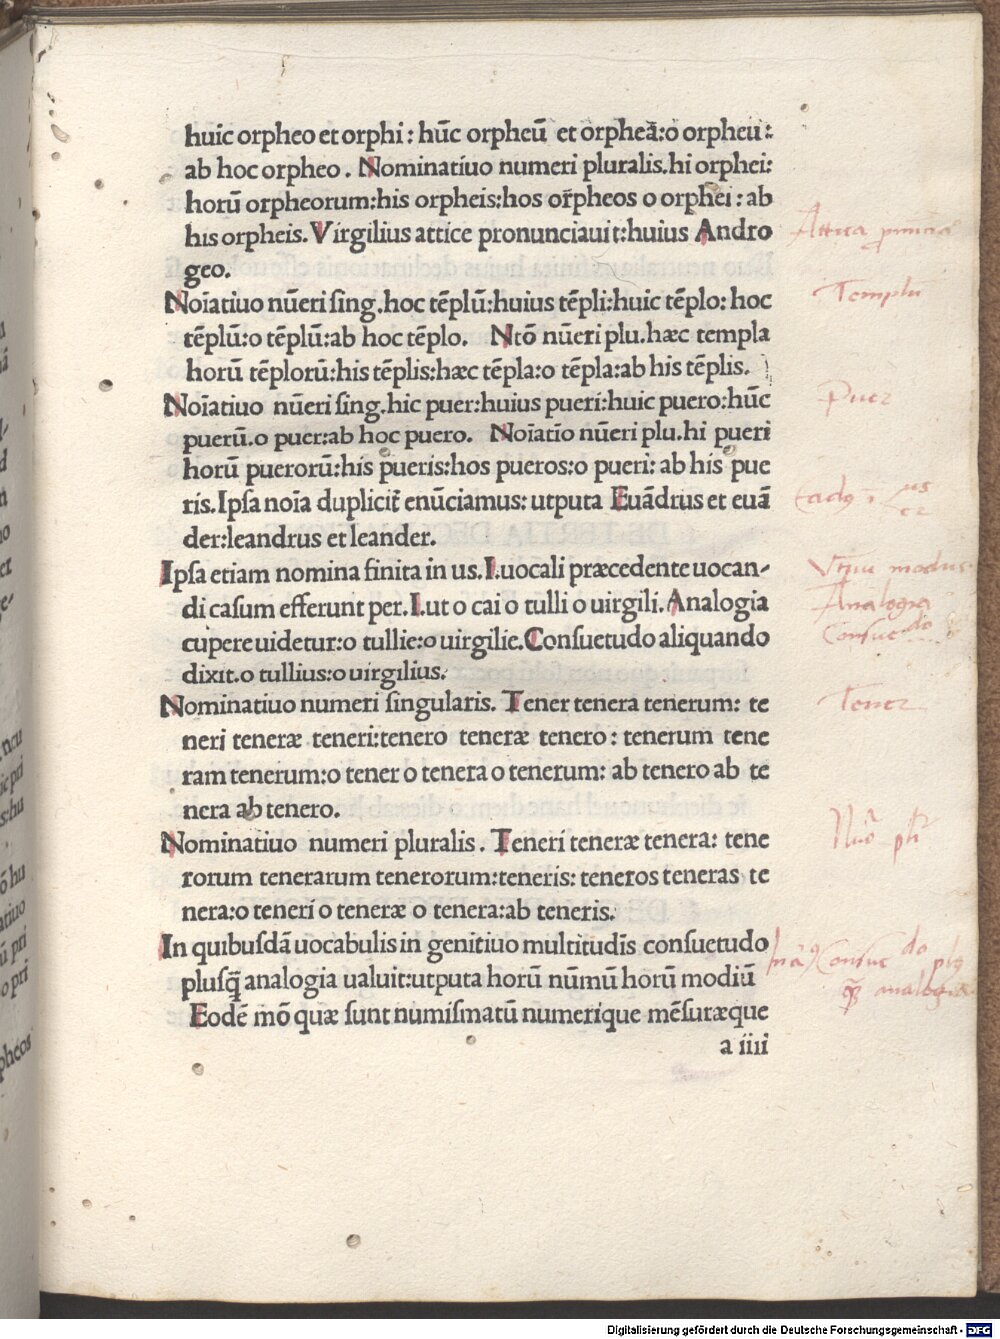 huic orpheo et orphi : hūc orpheū et orpheā:o orpheu :
ab hoc orpheo . Nominatiuo numeri pluralis.hi orphei:
horū orpheorum:his orpheis:hos orpheos o orphei : ab
his orpheis. Virgilius attice pronunciauit:huius Andro
geo.
Noīatiuo nūeri ſing.hoc tēplū:huius tēpli:huic tēplo: hoc
tēplū:o tēplū:ab hoc tēplo. Ntō nūeri plu.hæc templa
horū tēplorū:his tēplis:hæc tēpla:o tēpla:ab his tēplis.
Noīatiuo nūeri ſing.hic puer:huius pueri:huic puero:hūc
puerū.o puer:ab hoc puero. Noīatīo nūeri plu.hi pueri
horū puerorū:his pueris:hos pueros:o pueri: ab his pue
ris.Ipſa noīa duplicit̄ enūciamus: utputa Euādrus et euā
der:leandrus et leander.
Ipſa etiam nomina finita in us.I.uocali præcedente uocan-
di caſum efferunt per.I.ut o cai o tulli o uirgili. Analogia
cupere uidetur:o tullie:o uirgilie.Conſuetudo aliquando
dixit.o tullius:o uirgilius.
Nominatiuo numeri ſingularis. Tener tenera tenerum: te
neri teneræ teneri:tenero teneræ tenero : tenerum tene
ram tenerum:o tener o tenera o tenerum: ab tenero ab te
nera ab tenero.
Nominatiuo numeri pluralis . Teneri teneræ tenera: tene
rorum tenerarum tenerorum:teneris: teneros teneras te
nera:o teneri o teneræ o tenera:ab teneris.
In quibuſdā uocabulis in genitiuo multitudīs conſuetudo
pluſq̄ analogia ualuit:utputa horū nūmū horū modiū
Eodē mō quæ ſunt numiſmatū numerique mēſuræque
a iiii
Attica
Templū
Puer
us
er
modus
Analogia
Consuetdo
Tener
Consuetdo
analogia
Digitalisierung gefördert durch die Deutsche Forschungsgemeinschaft - DFG